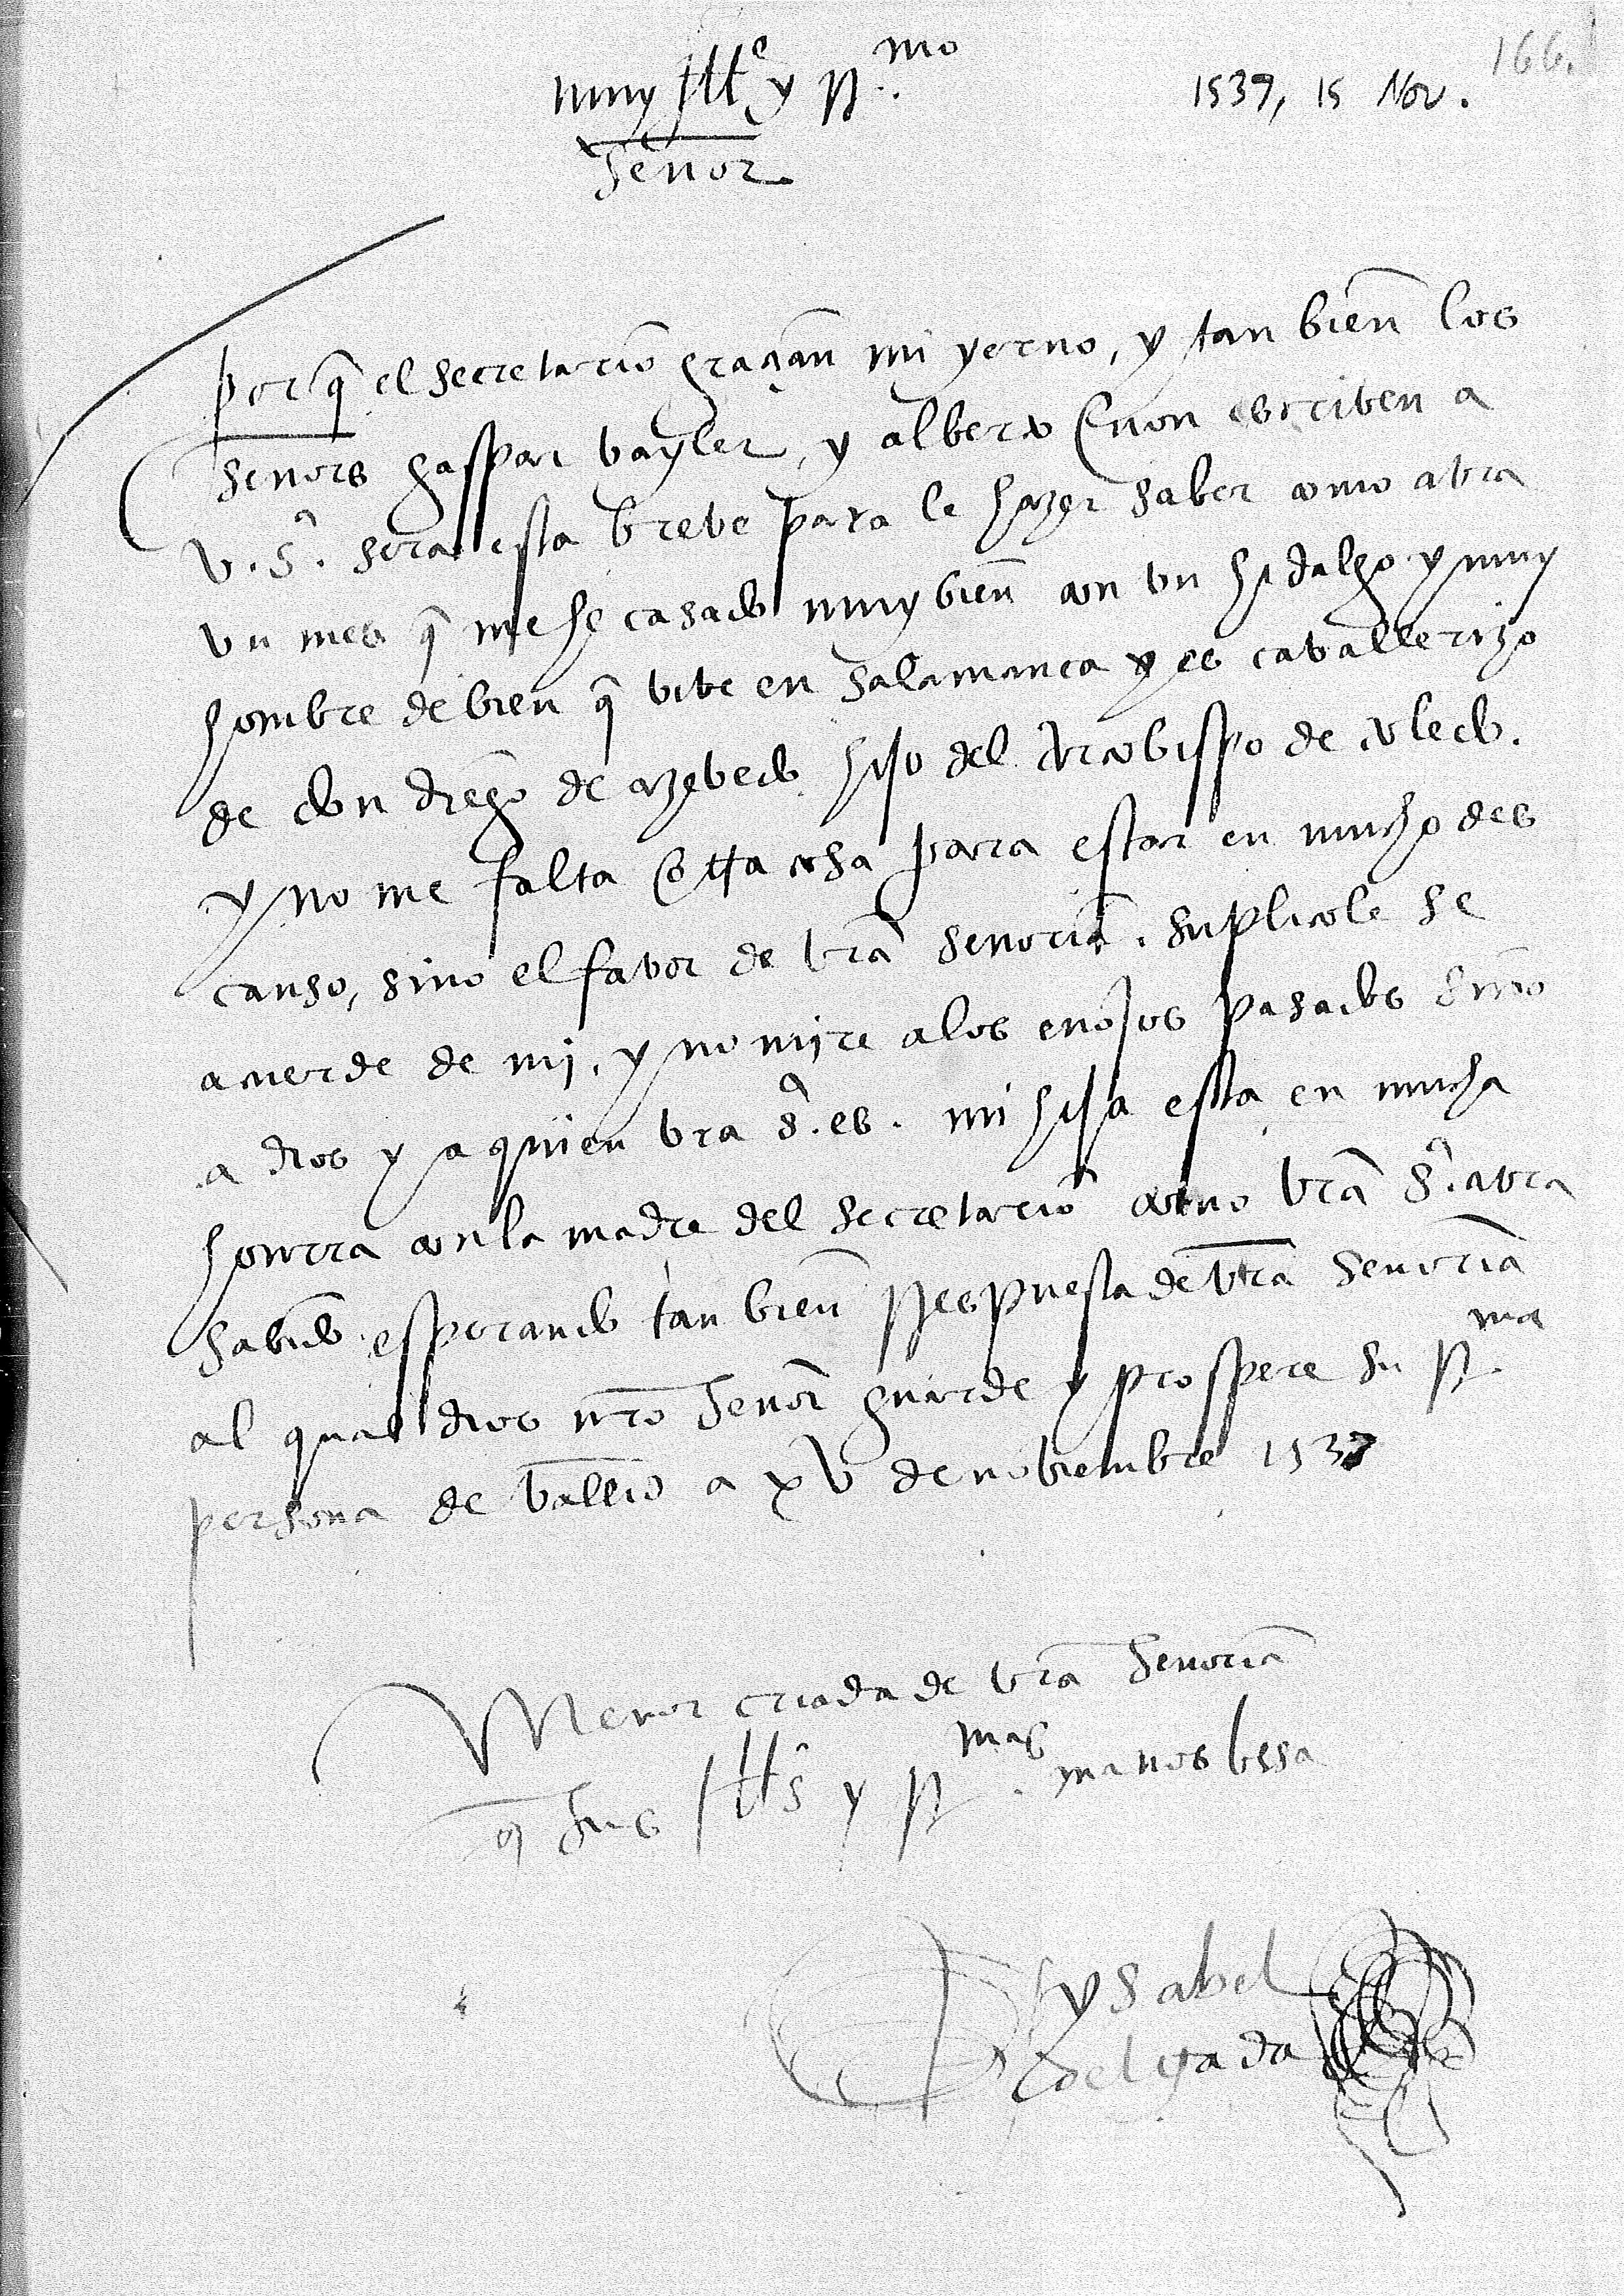 166.
1539, 15 Nov.
muy Ille y R.mo
señor
Porq̃ el secretario graçian mi yerno, y tan bien los
señores gaspar vayler, y alberto Cuon escriven a
v. s.a sera esta breve para le hazer saber como avra
vn mes q̃ me he casado muy bien con vn hidalgo y muy
hombre de bien q̃ vive en salamanca y es cavallerizo
de don diego de azevedo hijo del Arcobispo de toledo.
y no me falta otra cosa para estar en mucho des
canso, sino el favor de vr̃a señoria. suplicole se
acuerde de mi, y no mire a los enojos pasados sino
a dios y a quien vra s.a es. mi hija esta en mucha
honrra con la madre del secretario como vr̃a s.a avra
sabido esperando tan bien Respuesta de vr̃a señoria
al qual dios nr̃o señor guarde y prospere su R.ma
persona de vallid a xv de noviembre 1539
Menor criada de vr̃a señoria
q̃ sus Illes y R.mas manos besa
ysabel
delgada